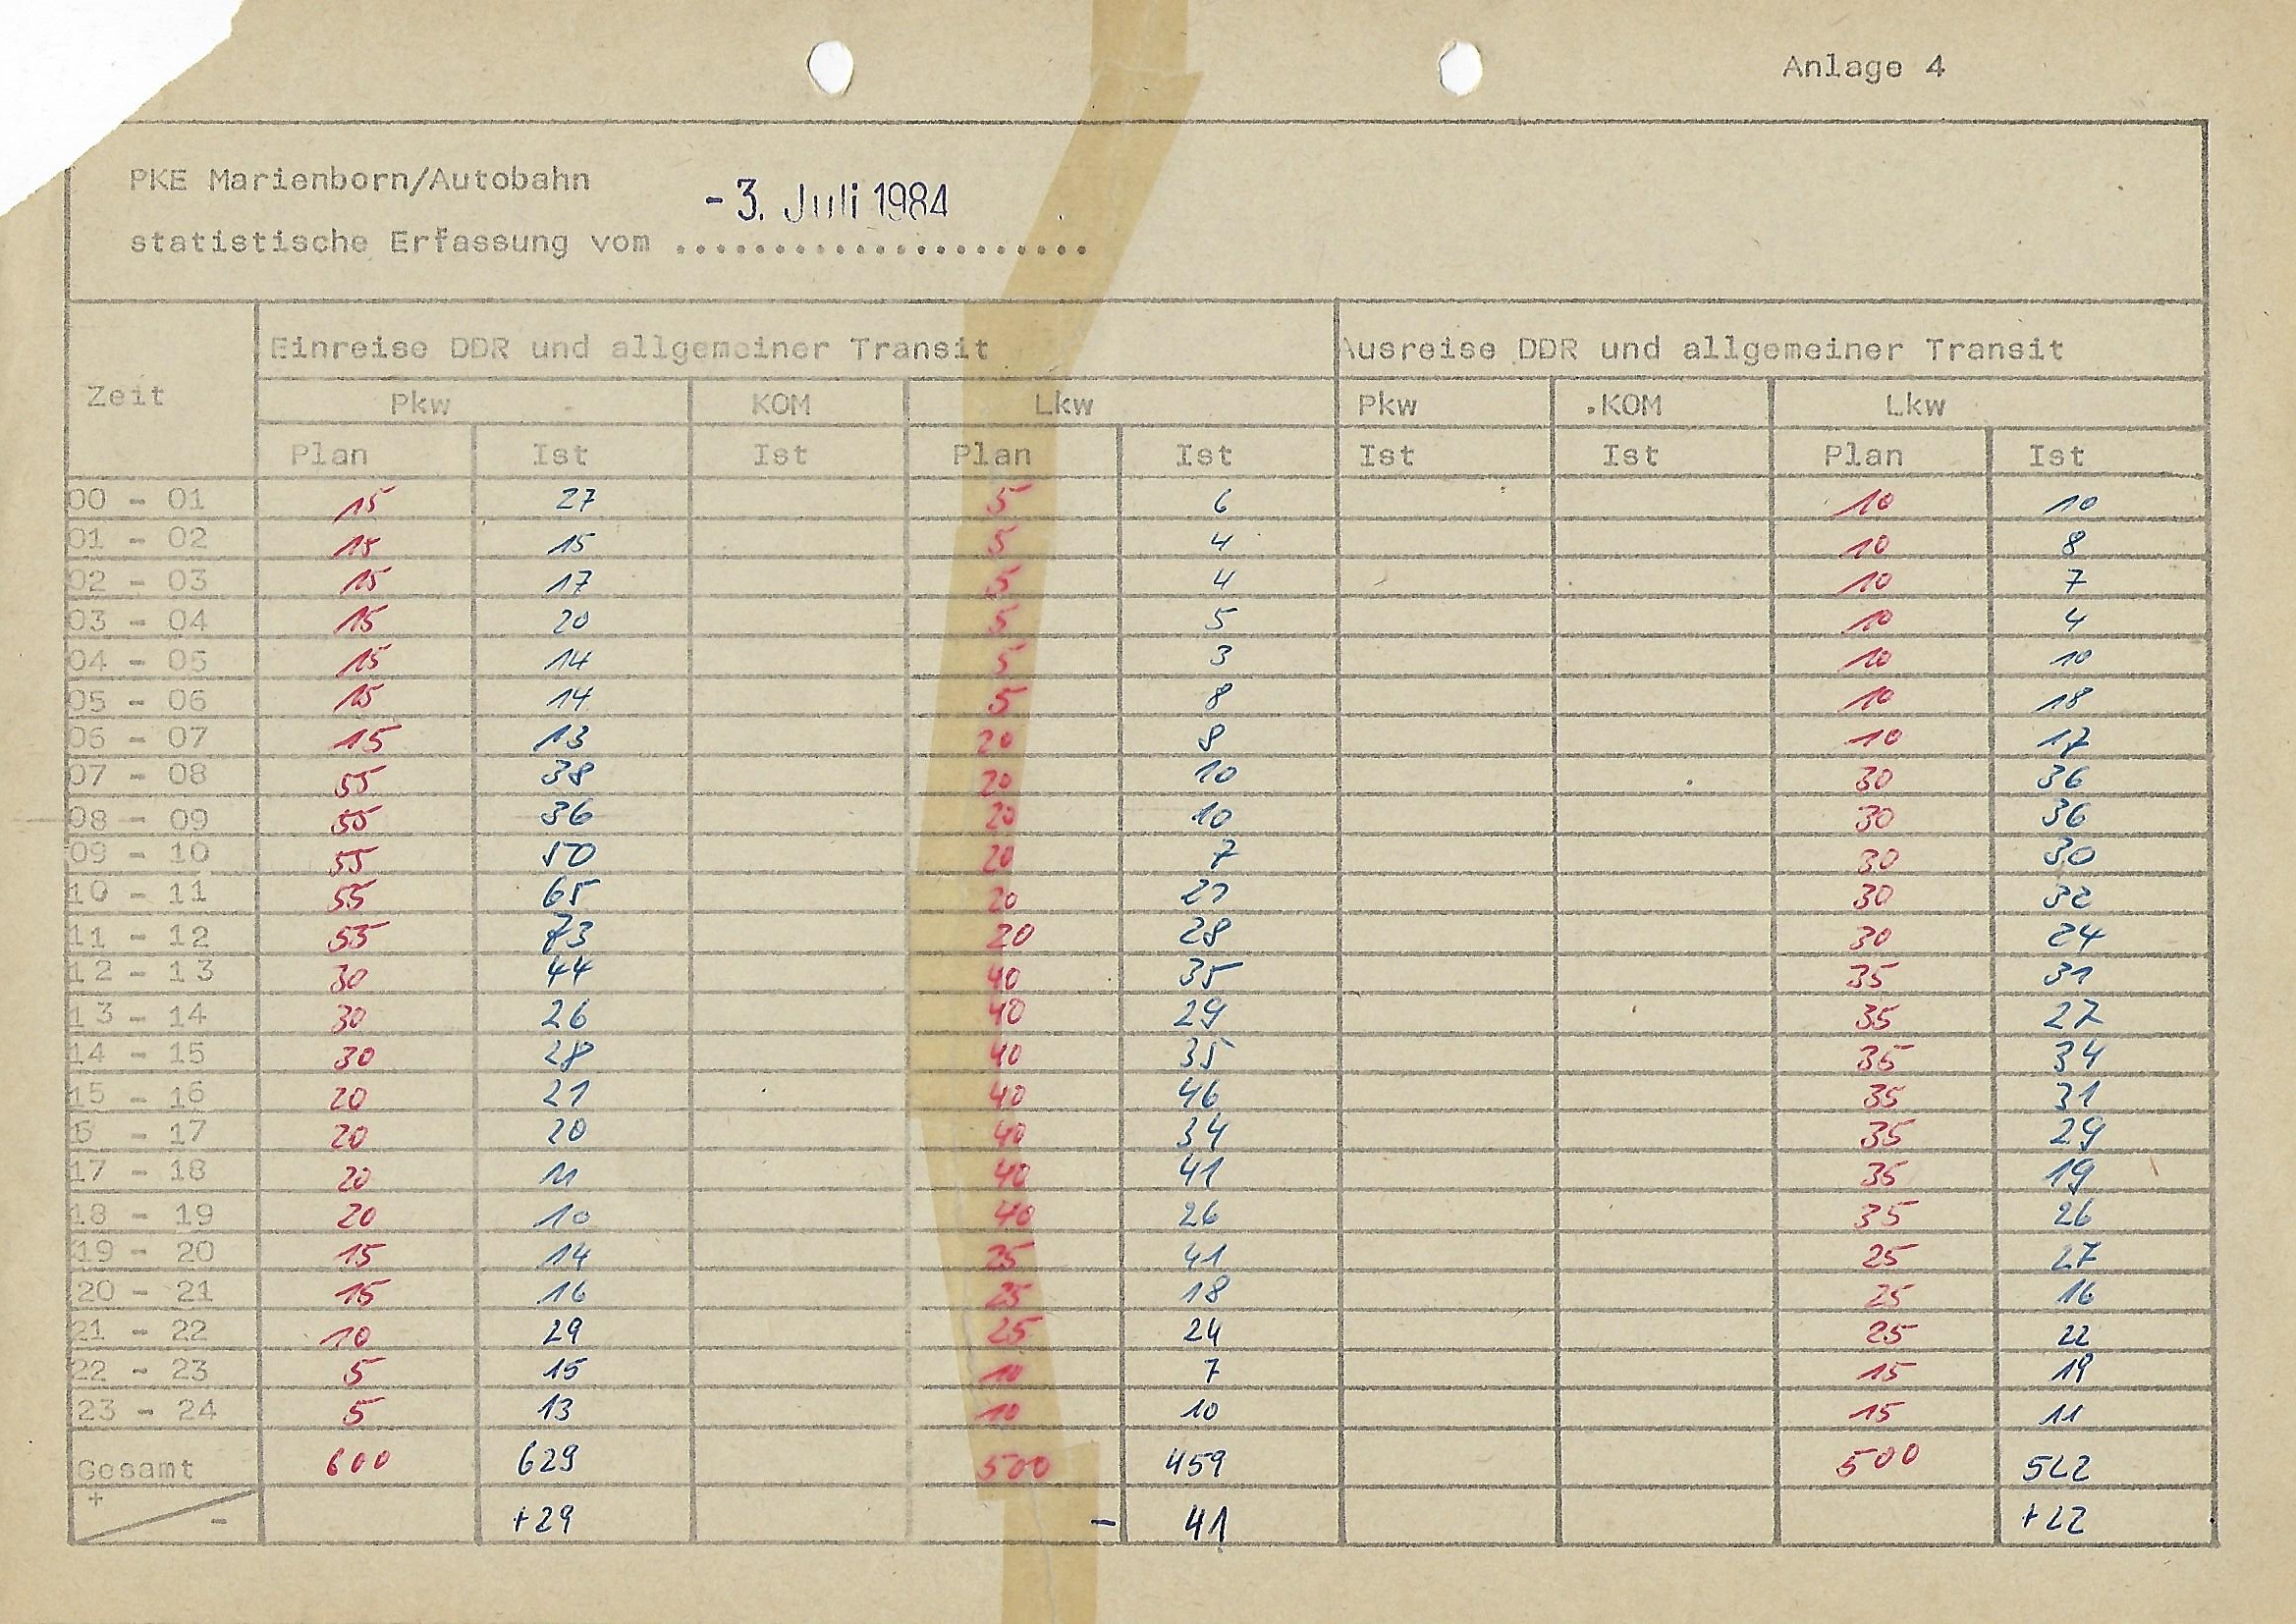 Anlage 4
PKE Marienborn/Autobahn
-3. Juli 1984
statistische Erfassung vom .....................
Zeit Einreise DDR und allgemeiner Transit Ausreise DDR und allgemeiner Transit
Pkw KOM Lkw Pkw .KOM Lkw
Plan Ist Ist Plan Ist Ist Ist Plan Ist
00 - 01 15 27 5 6 10 10
01 - 02 15 15 5 4 10 8
02 - 03 15 17 5 4 10 7
03 - 04 15 20 5 5 10 4
04 - 05 15 14 5 3 10 10
05 - 06 15 14 5 8 10 18
06 - 07 15 13 20 8 10 17
07 - 08 55 38 20 10 30 36
08 - 09 55 36 20 10 30 36
09 - 10 55 50 20 7 30 30
10 - 11 55 65 20 30 32
11 - 12 55 73 20 28 30 24
12 - 13 30 44 40 35 35 31
13 - 14 30 26 40 29 35 27
14 - 15 30 28 40 35 35 34
15 - 16 20 21 40 46 35 31
6 - 17 20 20 40 34 35 29
17 - 18 20 11 40 41 35 19
18 - 19 20 10 40 26 35 26
19 - 20 15 14 25 41 25 27
20 - 21 15 16 25 18 25 16
21 - 22 10 29 25 24 25 22
22 - 23 5 15 10 7 15
23 - 24 5 13 10 10 15 11
Gesamt 600 629 500 459 500 522
+ - +29 - 41 +22